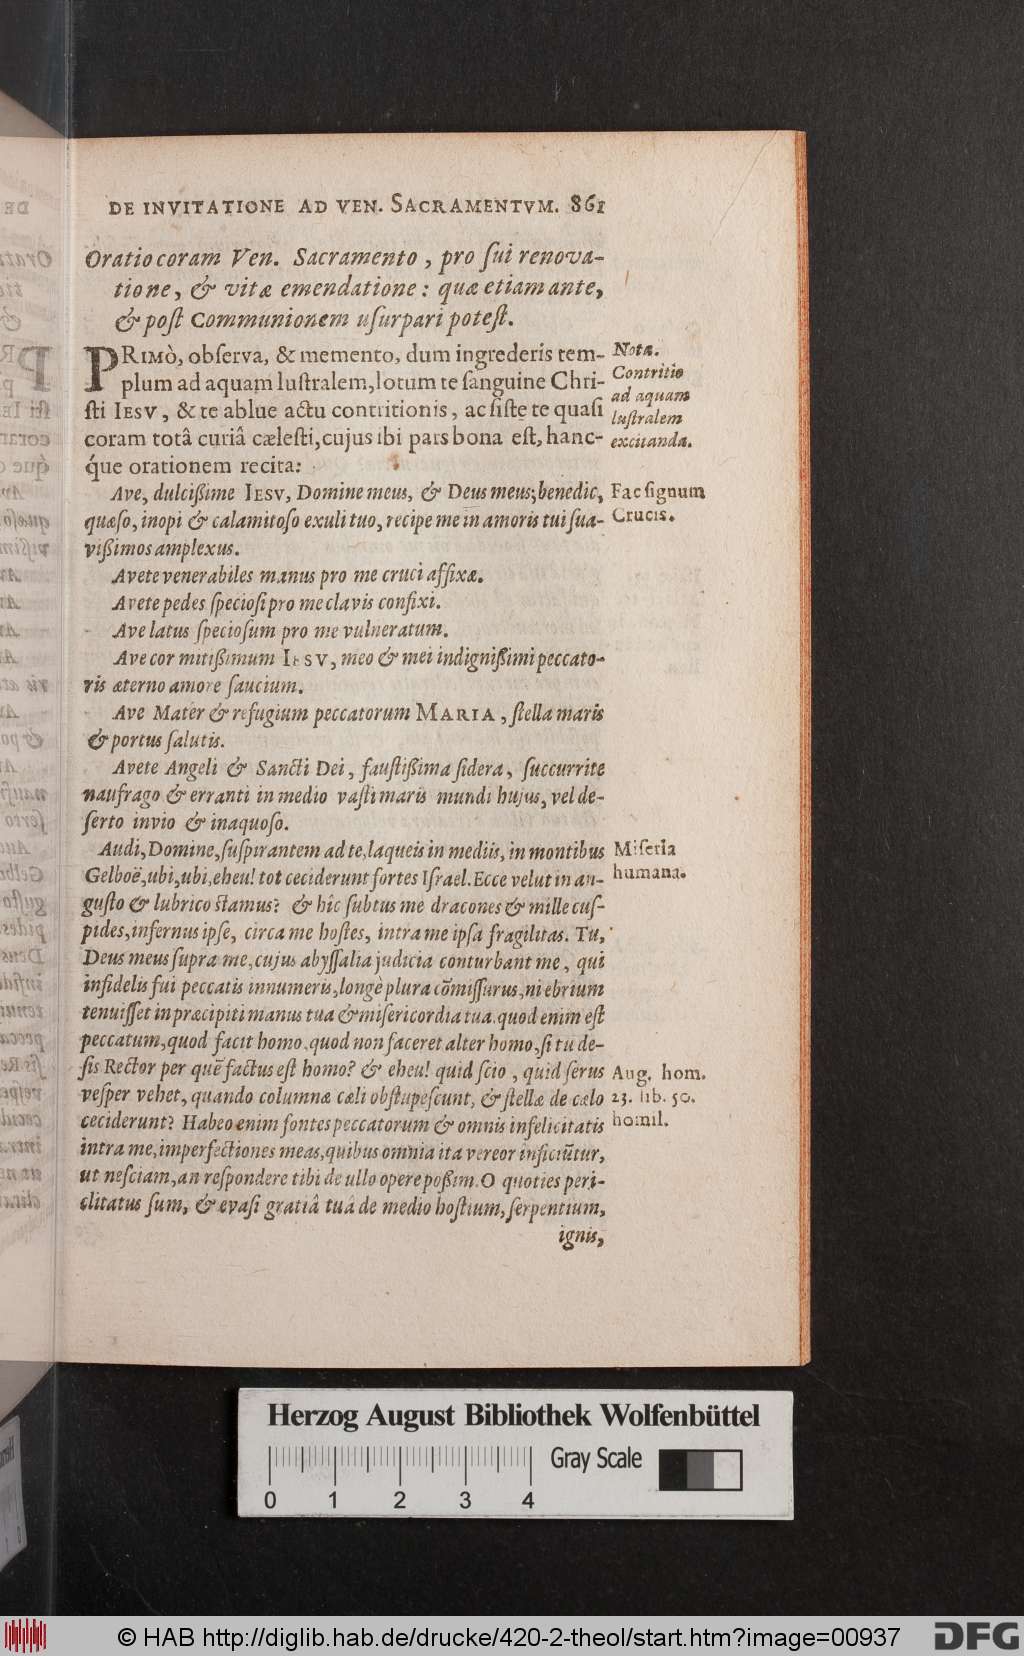 DE INVITATIONE AD VEN. SACRAMENTVM. 861
Oratio coram Ven. Sacramento, pro ſui renova-
tione, & vitæ emendatione: quæ etiam ante,
& poſt Communionem uſurpari poteſt.
PRIMÒ, obſerva, & memento, dum ingrederis tem-
plum ad aquam luſtralem, lotum te ſanguine Chri-
ſti IESV, & te ablue actu contritionis, ac ſiſte te quaſi
coram totâ curiâ cæleſti, cujus ibi pars bona eſt, hanc-
q́ue orationem recita:
Notæ.
Contritio
ad aquam
luſtralem
excitanda.
Ave, dulciſſime IESV, Domine meus, & Deus meus; benedic,
quæſo, inopi & calamitoſo exuli tuo, recipe me in amoris tui ſua-
viſſimos amplexus.
Fac ſignum
Crucis.
Avete venerabiles manus pro me cruci affixæ.
Avete pedes ſpecioſi pro me clavis confixi.
Ave latus ſpecioſum pro me vulneratum.
Ave cor mitiſſimum IESV, meo & mei indigniſſimi peccato-
ris æterno amore ſaucium.
Ave Mater & refugium peccatorum MARIA, ſtella maris
& portus ſalutis.
Avete Angeli & Sancti Dei, fauſtiſſima ſidera, ſuccurrite
naufrago & erranti in medio vaſti maris mundi hujus, vel de-
ſerto invio & inaquoſo.
Audi, Domine, ſuſpirantem ad te, laqueis in mediis, in montibus
Gelboë, ubi, ubi, eheu! tot ceciderunt fortes Iſrael. Ecce velut in an-
guſto & lubrico ſtamus? & hîc ſubtus me dracones & mille cuſ-
pides, infernus ipſe, circa me hoſtes, intra me ipſa fragilitas. Tu,
Deus meus ſupra me, cujus abyſſalia judicia conturbant me, qui
infidelis fui peccatis innumeris, longè plura cõmiſſurus, ni ebrium
tenuiſſet in præcipiti manus tua & miſericordia tua. quod enim eſt
peccatum, quod facit homo, quod non faceret alter homo, ſi tu de-
ſis Rector per quẽ factus eſt homo? & eheu! quid ſcio, quid ſerus
veſper vehet, quando columnæ cæli obſtupeſcunt, & ſtellæ de cælo
ceciderunt? Habeo enim fontes peccatorum & omnis infelicitatis
intra me, imperfectiones meas, quibus omnia ita vereor inficiũtur,
ut neſciam, an reſpondere tibi de ullo opere poſſim. O quoties peri-
clitatus ſum, & evaſi gratiâ tuâ de medio hoſtium, ſerpentium,
ignis,
Miſeria
humana.
Aug. hom.
23. lib. 50.
homil.
Herzog August Bibliothek Wolfenbüttel
Gray Scale
0 1 2 3 4
© HAB http://diglib.hab.de/drucke/420-2-theol/start.htm?image=00937
DFG